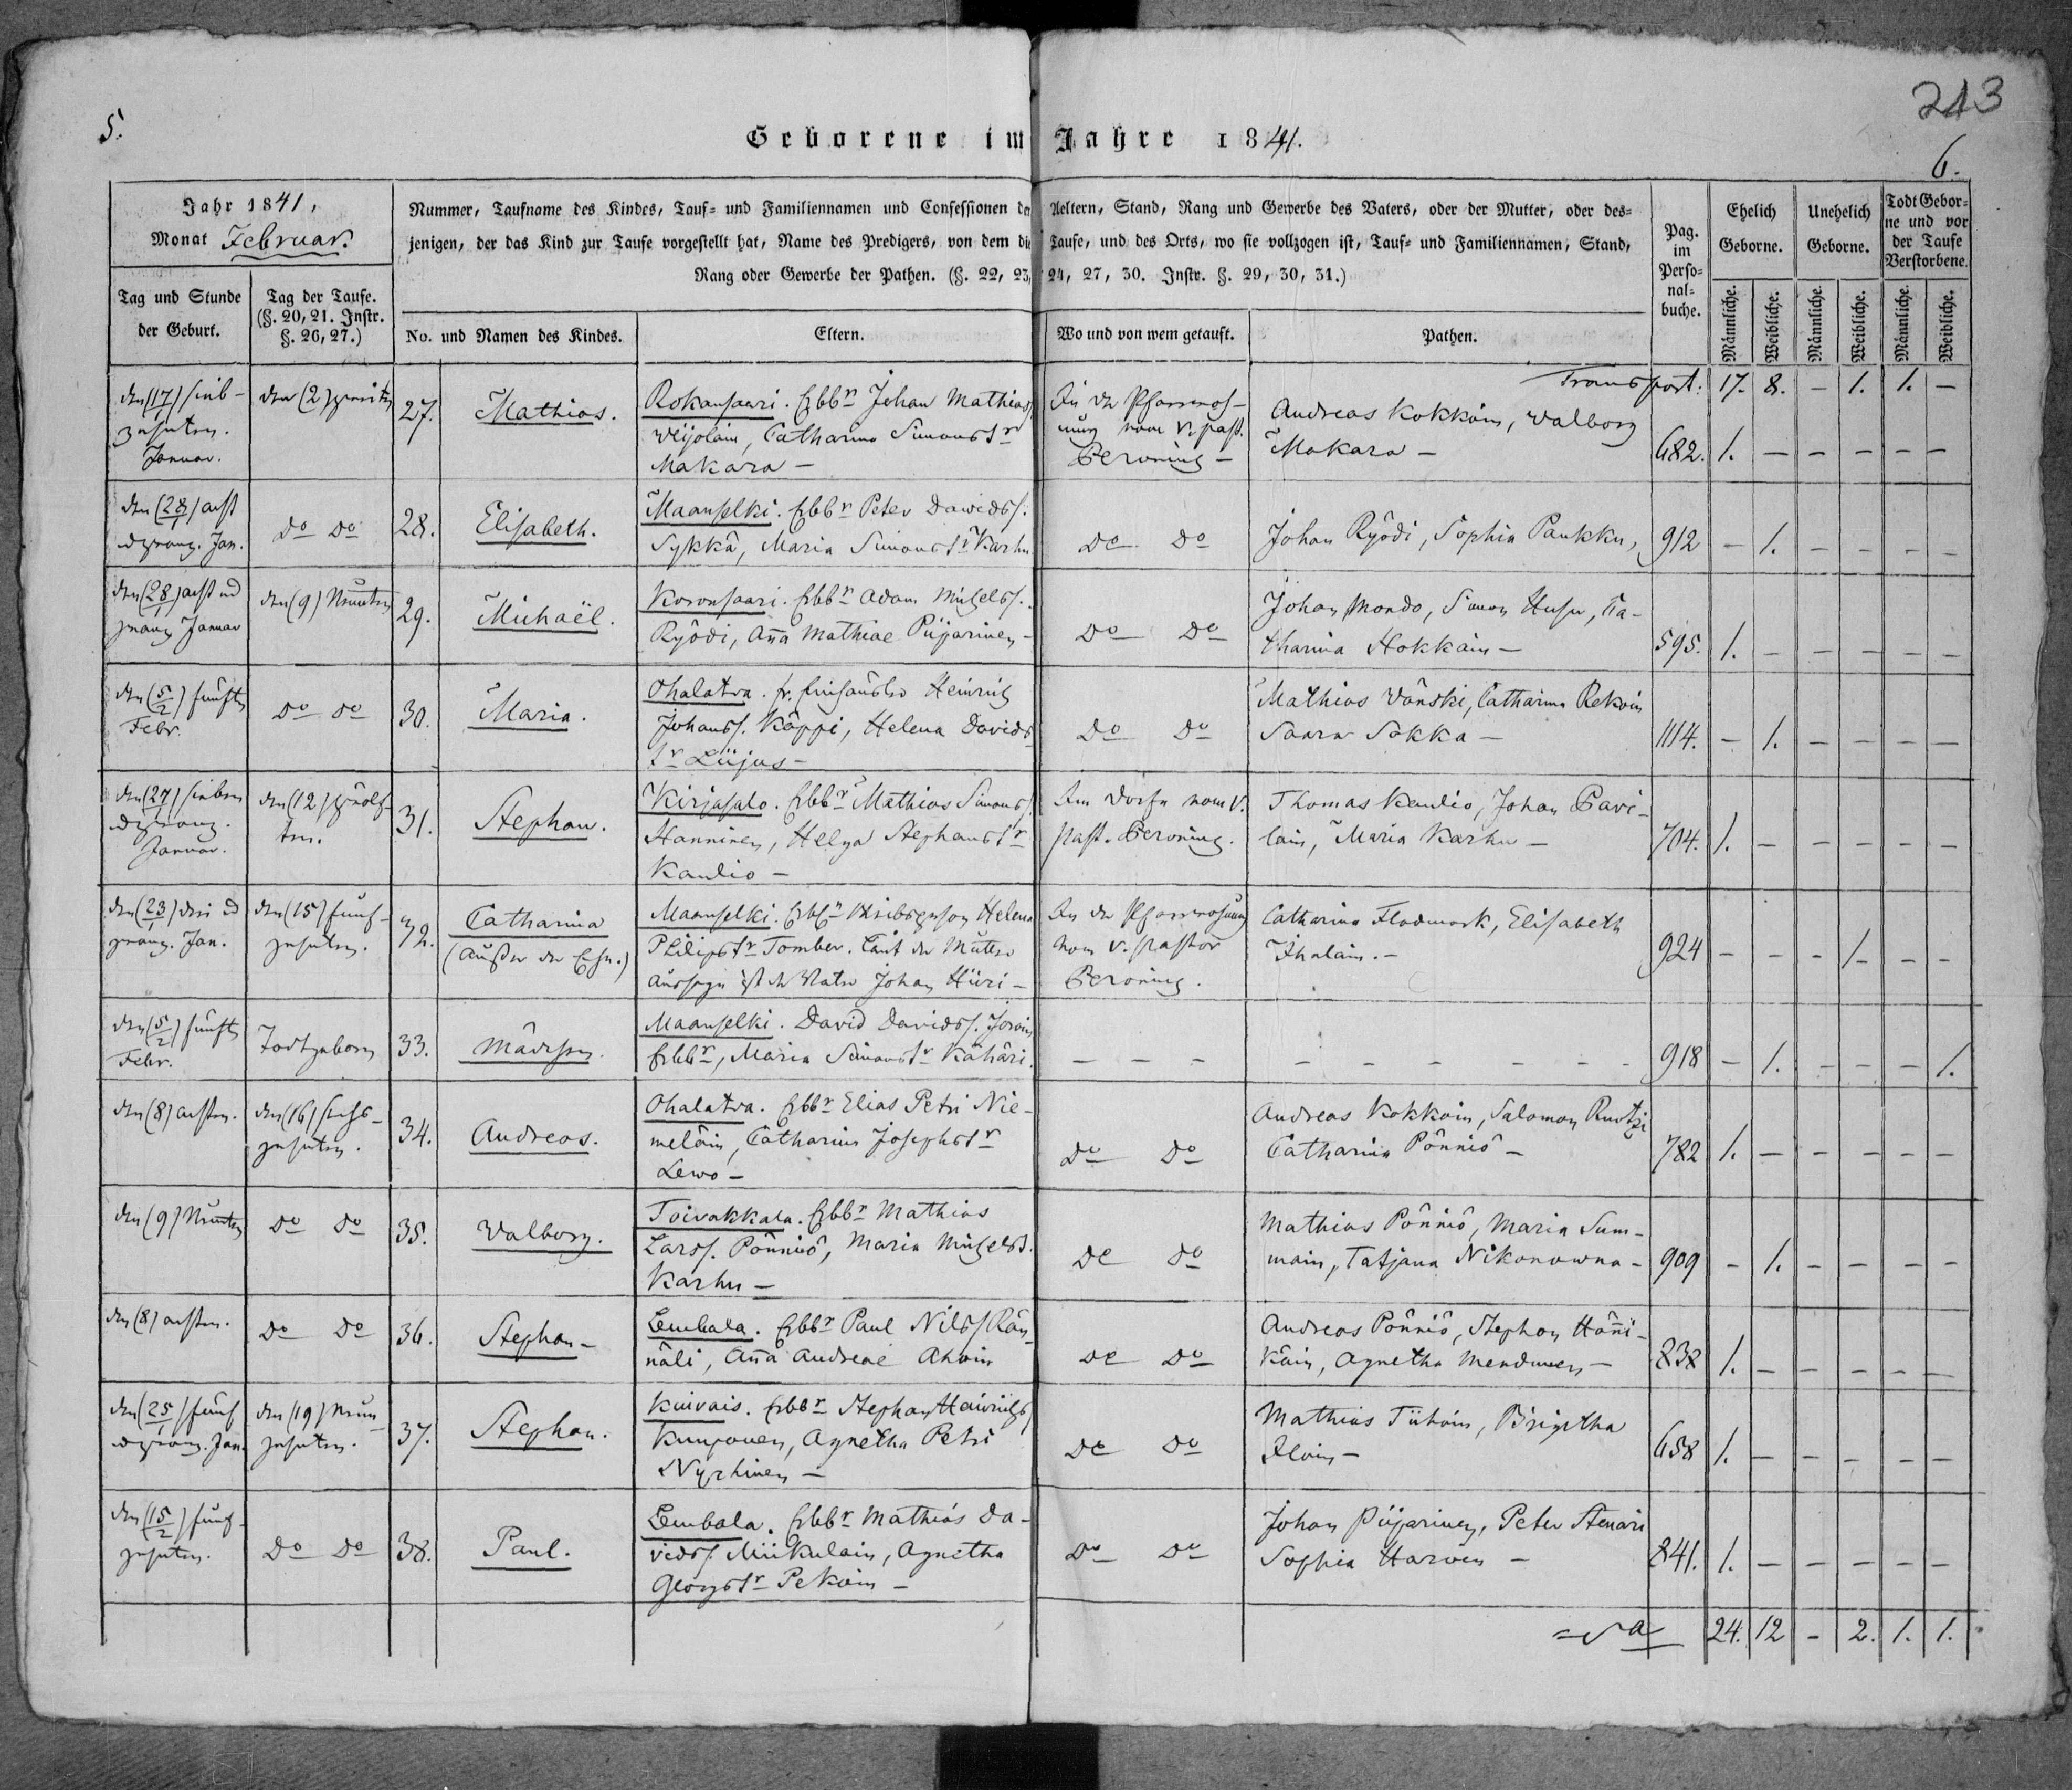 213
5.
Geborene im Jahre 1841.
6.
Jahr 1841,
Monat Februar.
Nummer, Taufname des Kindes, Tauf- und Familiennamen und Confessionen der Aeltern, Stand, Rang und Gewerbe des Vaters, oder der Mutter, oder des-
jenigen, der das Kind zur Taufe vorgestellt hat, Name des Predigers, von dem die Taufe, und des Orts, wo sie vollzogen ist, Tauf- und Familiennamen, Stand,
Rang oder Gewerbe der Pathen. (§. 22, 23, 24, 27, 30. Instr. §. 29, 30, 31.)
Pag.
im
Perso-
nal-
buche.
Ehelich
Geborne.
Unehelich
Geborne.
Todt Gebor-
ne und vor
der Taufe
Verstorbene.
Tag und Stunde
der Geburt.
Tag der Taufe.
(§. 20, 21. Instr.
§. 26, 27.)
No. und Namen des Kindes.
Eltern.
Wo und von wem getauft.
Pathen.
Männliche.
Weibliche.
Männliche.
Weibliche.
Männliche.
Weibliche.
Transport: 17. 8. - 1. 1. -
den (17/1) sieb-
zehnten.
Januar.
den (2) zweiten
27.
Mathias.
Rokansaari. Ebbr Johan Mathiass.
Wijolain, Catharina Simonstr
Makara -
In der Pfarrwoh-
nung vom V. past.
Beroning -
Andreas Kokkoin, Walborg
Makara -
682. 1. - - - - -
den (28/1) acht
u zwanz. Jan.
Do Do
28.
Elisabeth.
Maanselki. Ebbr Peter Davidss.
Sykkä, Maria Simonstr Karhu
Do Do
Johan Ryödi, Sophia Paukku,
912 - 1. - - - -
den (28/1) acht ud
zwanz Januar
den (9) Neunten
29.
Michaël.
Koronsaari. Ebbr Adam Michelss.
Ryödi, Anna Mathiae Piijarinen -
Do Do
Johan Mondo, Simon Husu, Ca-
tharina Hokkain -
595. 1. - - - - -
den (5/2) fünften
Febr.
Do Do
30.
Maria.
Ohalatva. Heinrich
Johanss. Käppi, Helena Davids
tr Liijus -
Do Do
Mathias Wänski, Catharina Rekoin
Saara Sokka -
1114. - 1. - - - -
den (27/1) sieben
u zwanz.
Januar.
den (12) zwölf-
ten.
31.
Stephan.
Kirjasalo. Ebbr Mathias Simonss.
Hanninen, Helga Stephanstr
Kaulio -
Im Dorfe vom V.
past. Beroning.
Thomas Kaulio, Johan Pavi-
lain, Maria Karhu -
704. 1. - - - - -
den (23/1) drei ud
zwanz. Jan.
den (15) fünf-
zehnten.
32.
Catharina
(außer der Ehe.)
Maanselki. Helena
Philipstr Tomber. Laut der Mutter
Aussage ist der Vater Johan Hiiri -
In der Pfarrwohnung
vom V. pastor
Beroning.
Catharina Flodmark, Elisabeth
Ihalain. -
924 - - - 1. - -
den (5/2) fünften
Febr.
Todtgeboren
33.
Mädchen.
Maanselki. David Davidss. Joroin
Ebbr, Maria Simonstr Kähäri.
- - - - - - - - -
918 - 1. - - - 1.
den (8) achten.
den (16) sechs-
zehnten.
34.
Andreas.
Ohalatva. Ebbr Elias Petri Nie-
meläin, Catharina Josephstr
Lewo -
Do Do
Andreas Kokkoin, Salomon
Catharina Pönniö -
782 1. - - - - -
den (9) Neunten
Do Do
35.
Walborg.
Toivakkala. Ebbr Mathias
Larss. Pönniö, Maria Michelst.
Karhu -
Do Do
Mathias Pönniö, Maria Sum-
main, Tatjana Nikonowna -
909 - 1. - - - -
den (8) achten.
Do Do
36.
Stephan -
Lembala. Ebbr Paul Nilss Rän-
näli, Anna Andreae Ahoin
Do Do
Andreas Pönniö, Stephan Hänni-
käin, Agnetha Mendinen -
838 1. - - - - -
den (25/1) fünf
u zwanz. Jan.
den (19) Neun
zehnten.
37.
Stephan.
Kuivais. Ebbr Stephan Heinrichs
Kuujonen, Agnetha Petri
Nyrhinen -
Do Do
Mathias Tiihoin, Birgitha
Iloin -
658 1. - - - - -
den (15/2) fünf-
zehnten.
Do Do
38.
Paul.
Lembala. Ebbr Mathias Da-
vidss. Miikulain, Agnetha
Georgstr Pekoin -
Do Do
Johan Piijarinen, Peter Stenari
Sophia Haroin -
841. 1. - - - - -
24. 12 - 2. 1. 1.